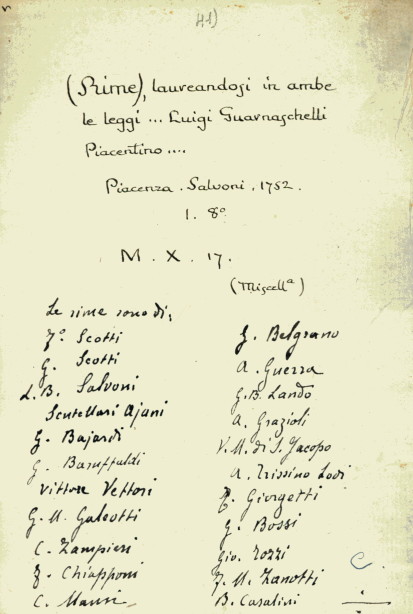 41)
(Rime), laureandosi in ambe
le leggi ... Luigi Guarnaschelli
Piacentino ....
Piacenza . Salvoni , 1752 .
1 . 8º
M . X . 17 .
(Miscellª)
Le rime sono di:
Fº Scotti
G. Scotti
L. B. Salvoni
Scutellari Ajani
G. Bajardi
G. Baruffaldi
Vittore Vettori
G. M. Galeotti
C. Zampieri
F. Chiapponi
C. Manzi
G. Belgrano
A. Guerra
G. B. Lando
A. Grazioli
V. M. di S. Jacopo
A. Trissino Lodi
F. Giorgetti
G. Bossi
Gio. Pozzi
F. M. Zanotti
B. Casalini
C.